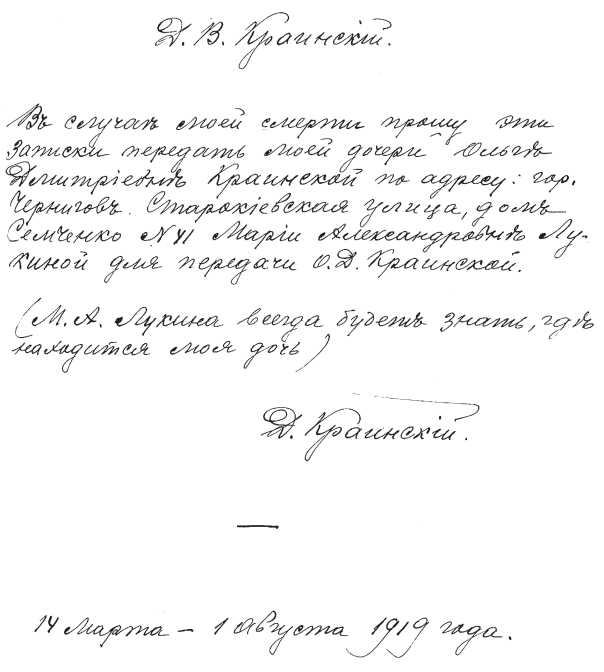 Д. В. Краинскій.
Въ случаѣ моей смерти прошу эти
записки передать моей дочери Ольгѣ
Дмитріевнѣ Краинской по адресу: гор.
Черниговъ. Старокіевская улица, домъ
Семченко № 41 Маріи Александровнѣ Лу-
киной для передачи О. Д. Краинской.
(М. А. Лукина всегда будетъ знать, гдѣ
находится моя дочь)
Д. Краинскій.
14 марта – 1 августа 1919 года.